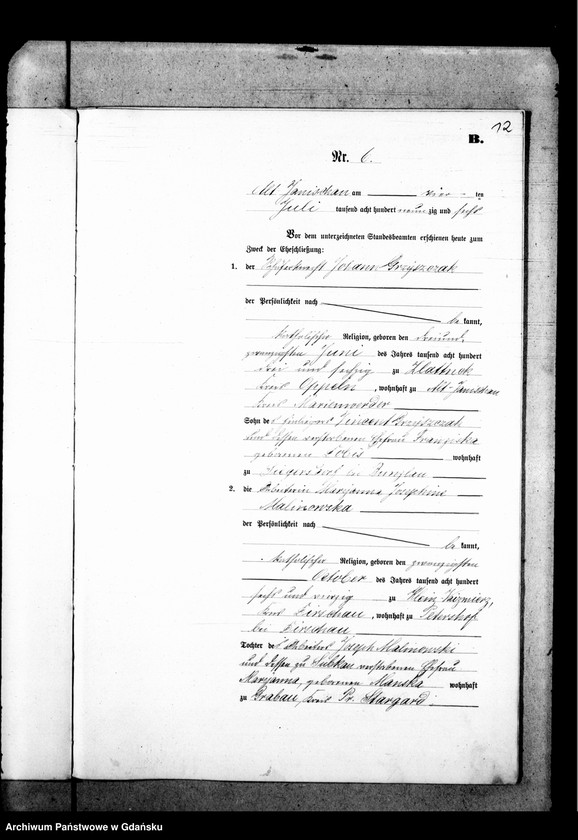 12
B.
Nr. 6.
Alt Janischau am vier ten
Juli tausend acht hundert neun zig und sechs
Vor dem unterzeichneten Standesbeamten erschienen heute zum
Zweck der Eheschließung:
1. der Johann Grzyszczak
der Persönlichkeit nach
be kannt,
katholischer Religion, geboren den dreiund
zwanzigsten Juni des Jahres tausend acht hundert
drei und sechzig zu Zlattnik
Kreis Oppeln, wohnhaft zu Alt-Janischau
Kreis Marienwerder
Sohn des Vincent Grzyszczak
und dessen verstorbenen Ehefrau Franziska
geborenen wohnhaft
zu bei Bunzlau
2. die Arbeiterin Marjanna Josephine
Malinowska
der Persönlichkeit nach
be kannt,
katholischer Religion, geboren den zwanzigsten
October des Jahres tausend acht hundert
sechs und zu Klein
Kreis Dirschau, wohnhaft zu Petershof
bei Dirschau
Tochter des Arbeiters Joseph Malinowski
und dessen zu Subkau verstorbenen Ehefrau
Marjanna, geborenen Manska wohnhaft
zu Grabau, Kreis Pr. Stargard.
Archiwum Państwowe w Gdańsku